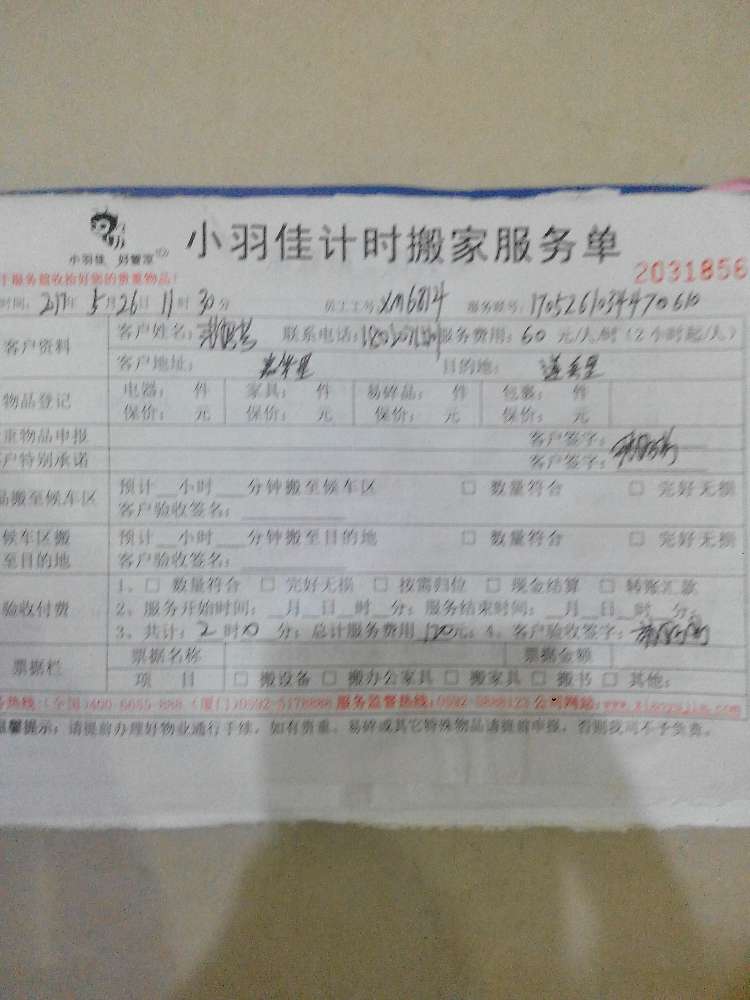 小羽佳计时搬家服务单
小羽佳 好管家
于服务前收捡好您的贵重物品!
2031856
时间: 2017年 5月26日 11时 30分 员工工号: XM6814 服务账号: 1705261034470610
客户资料 客户姓名: 联系电话: 服务费用: 60 元/人/时 (2小时起/人)
客户地址: 目的地:
物品登记 电器: 件 家具: 件 易碎品: 件 包裹: 件
保价: 元 保价: 元 保价: 元 保价: 元
重物品申报 客户签字:
户特别承诺 客户签字:
品搬至候车区 预计__小时___分钟搬至候车区 □ 数量符合 □ 完好无损
客户验收签名:
候车区搬 预计__小时___分钟搬至目的地 □ 数量符合 □ 完好无损
至目的地 客户验收签名:
验收付费 1、□ 数量符合 □ 完好无损 □ 按需归位 □ 现金结算 □ 转账汇款
2、服务开始时间: __月__日__时__分; 服务结束时间: __月__日__时__分;
3、共计: 2 时 0 分; 总计服务费用 120元; 4、客户验收签字:
票据栏 票据名称 票据金额
项 目 □ 搬设备 □ 搬办公家具 □ 搬家具 □ 搬书 □ 其他:
务热线:(全国)400-6055-888 (厦门)0592-5178888 服务监督热线:0592-5888123 公司网站:www.xiaoyujia.com
温馨提示: 请提前办理好物业通行手续, 如有贵重、易碎或其它特殊物品请提前申报, 否则我司不予负责。